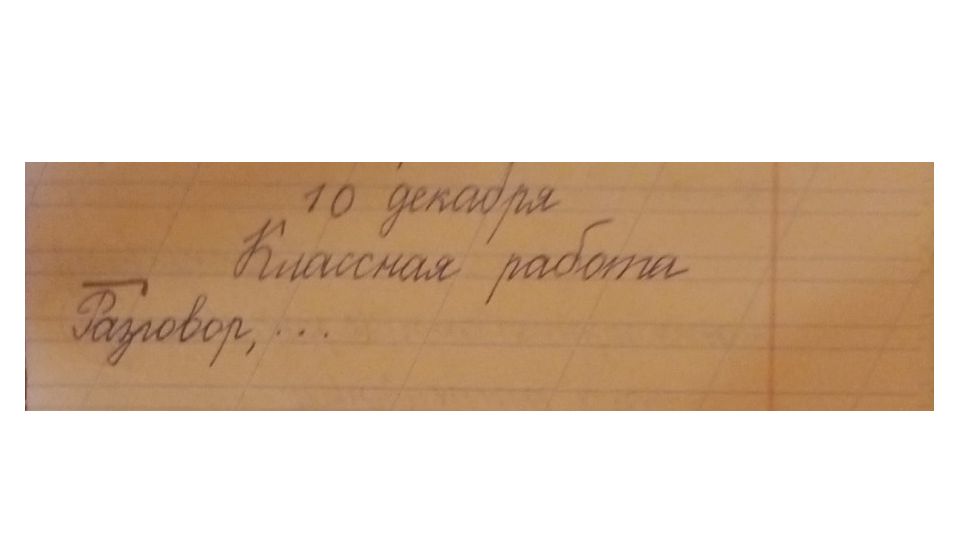 10 декабря
Классная работа
Разговор, ...